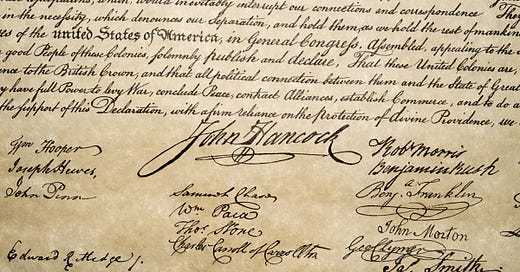 which would inevitably interrupt our connections and correspondence
in the necessity, which denounces our Separation, and hold them, as we hold the rest of mankind
es of the united States of America, in General Congress, Assembled, appealing to the
good People of these Colonies, solemnly publish and declare, That these United Colonies are,
nce to the British Crown, and that all political connection between them and the State of Great
y have full Power to levy War, conclude Peace, contract Alliances, establish Commerce, and to do a
the support of this Declaration, with a firm reliance on the protection of divine Providence, we
John Hancock
Wm Hooper
Joseph Hewes,
John Penn
Edward Rutledge /.
Samuel Chase
Wm. Paca
Thos. Stone
Charles Carroll of Carrollton
Robt Morris
Benjamin Rush
Benj. Franklin
John Morton
Geo Clymer
Jas. Smith